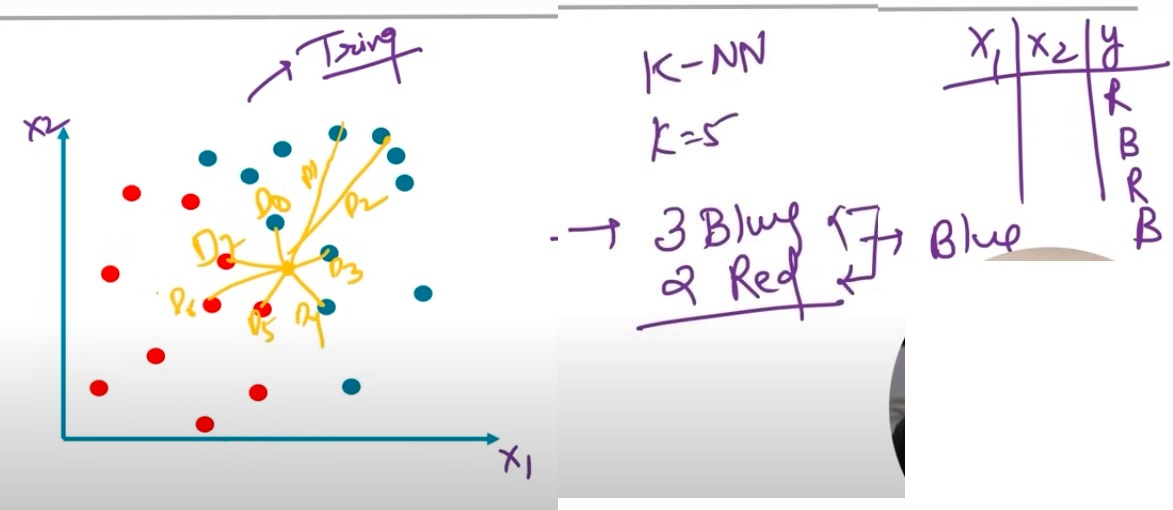 Tring
X2
D0
D1
D2
D3
D4
D5
D6
D7
X1
K-NN
K=5
→ 3 Blue
2 Red
→ Blue
X1 X2 y
R
B
R
B